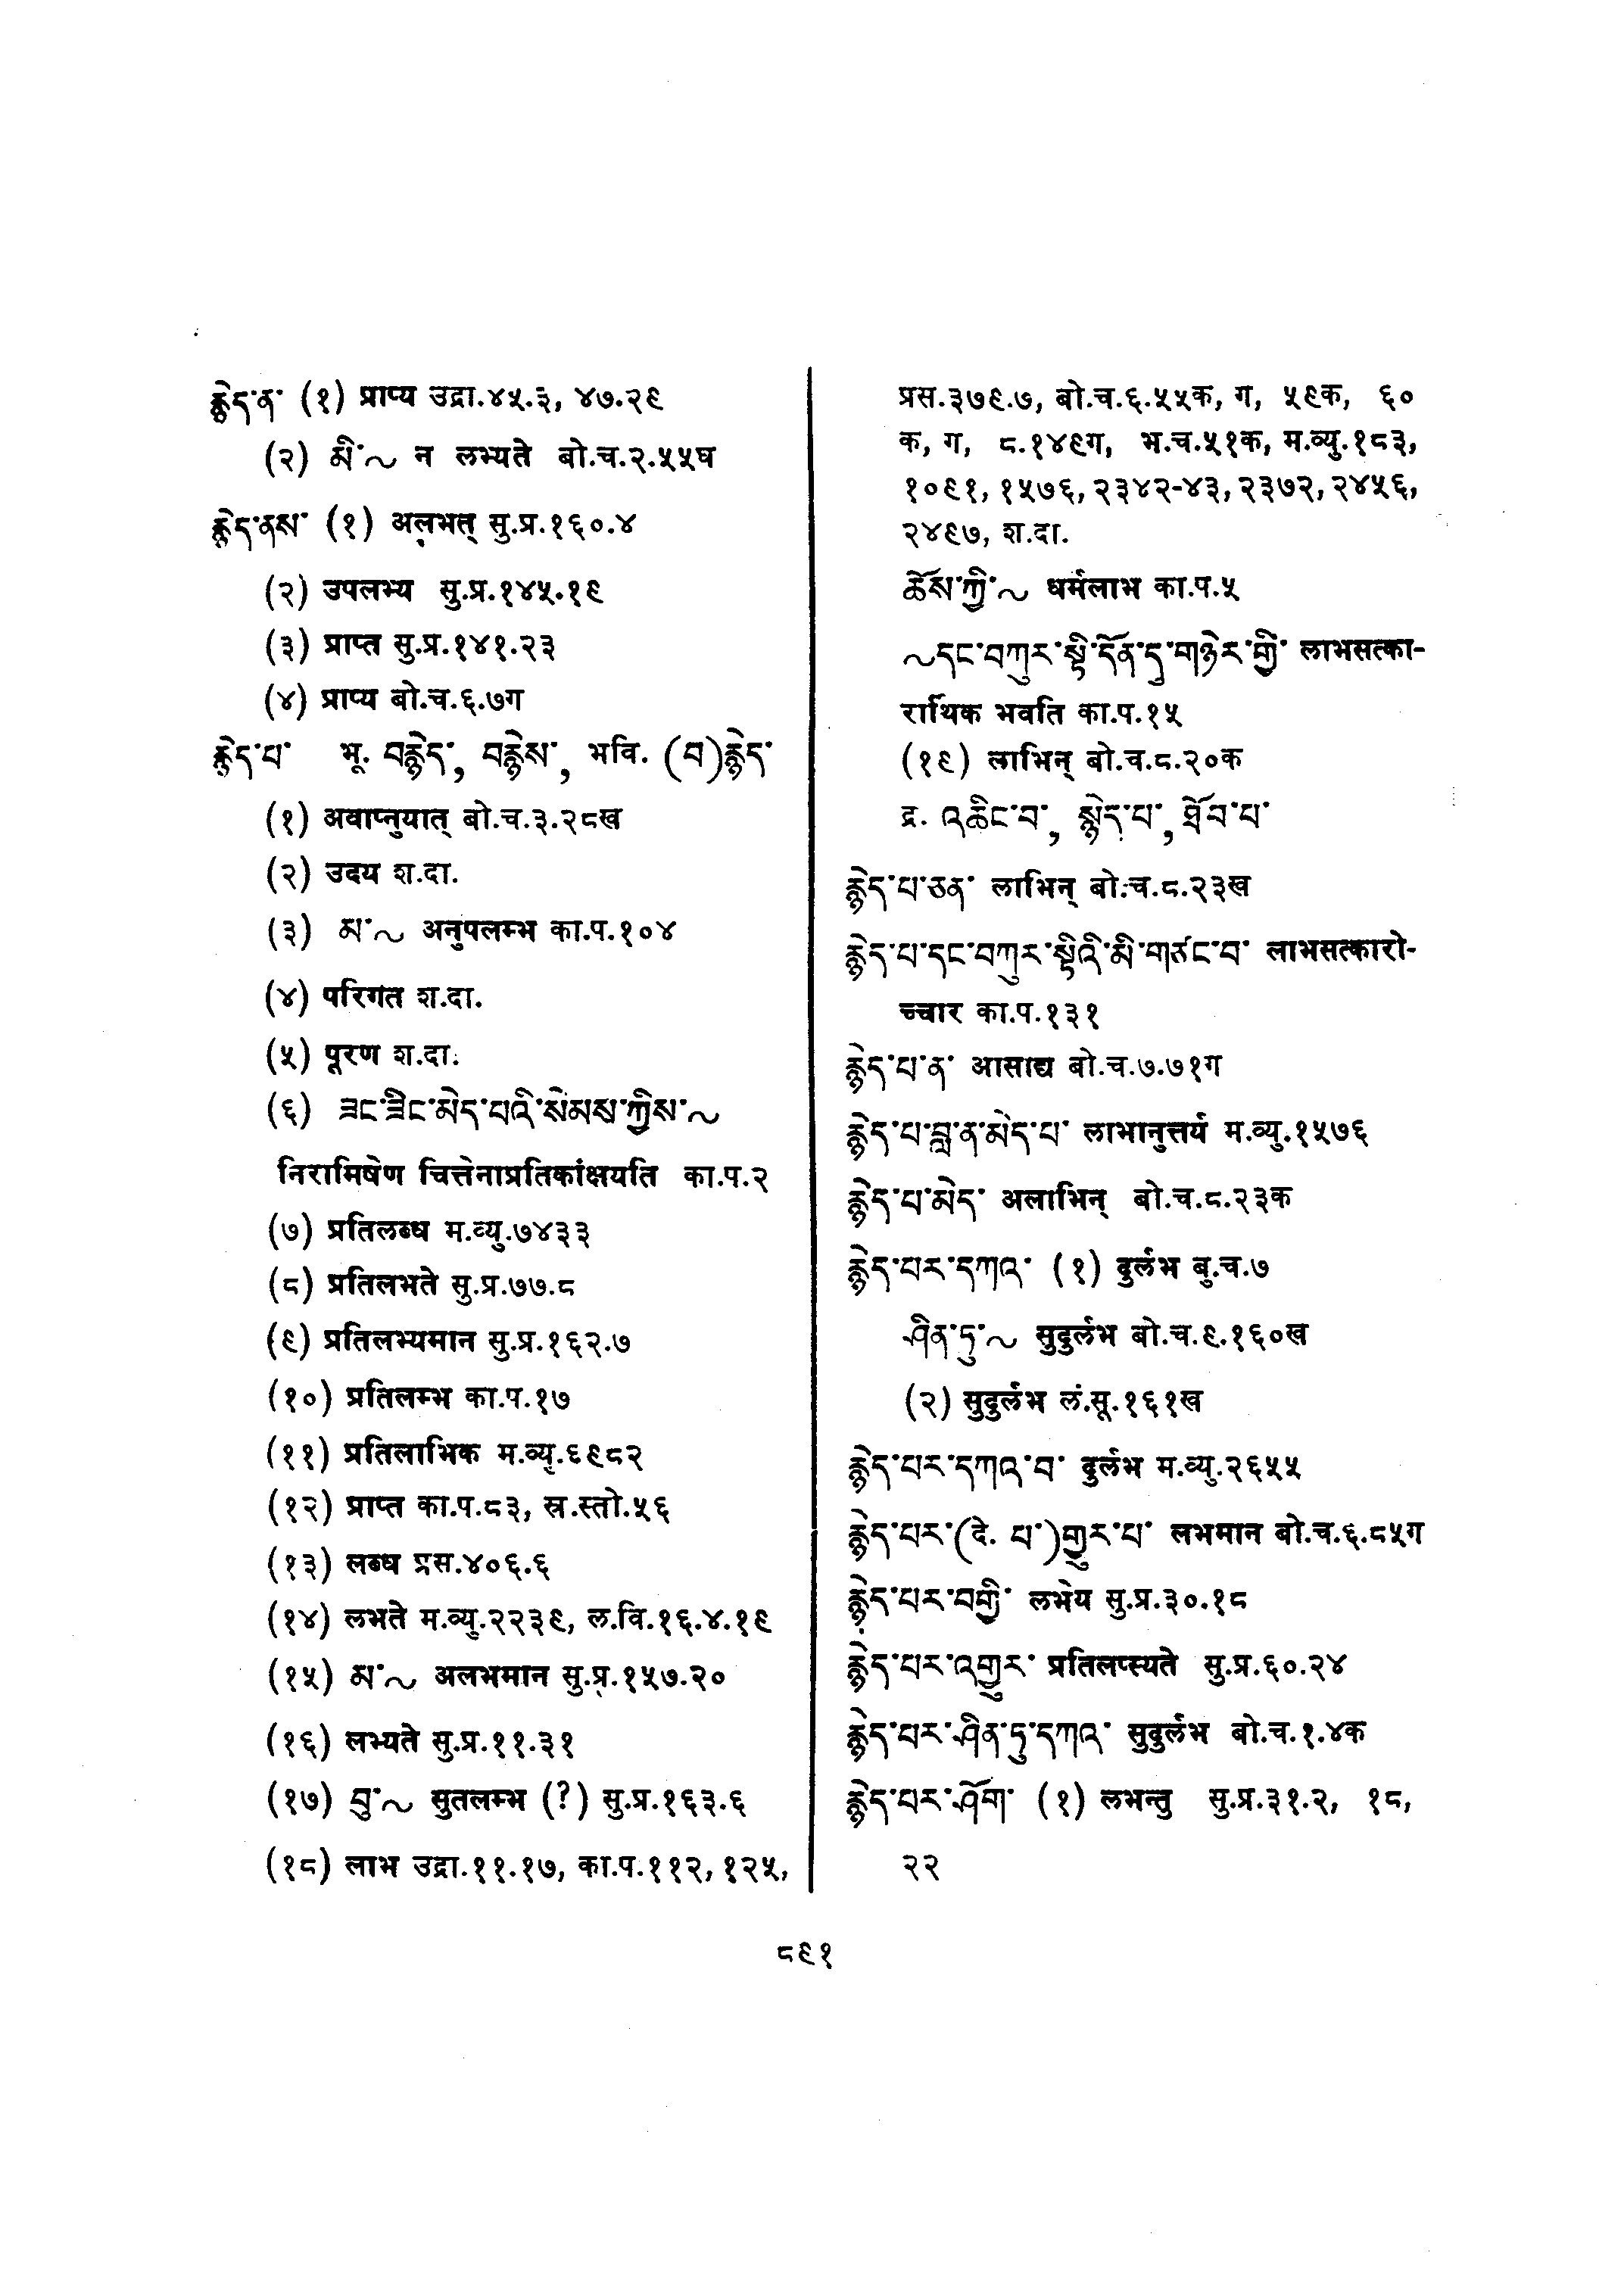 རྙེད་ན་ (१) प्राप्य उद्रा.४५.३, ४७.२९
(२) མི་~ न लभ्यते बो.च.२.५५घ
རྙེད་ནས་ (१) अलभत् सु.प्र.१६०.४
(२) उपलभ्य सु.प्र.१४५.१९
(३) प्राप्त सु.प्र.१४१.२३
(४) प्राप्य बो.च.६.७ग
རྙེད་པ་ भू. བརྙེད་, བརྙེས་, भवि. (བ)རྙེད་
(१) अवाप्नुयात् बो.च.३.२८ख
(२) उदय श.दा.
(३) མ་~ अनुपलम्भ का.प.१०४
(४) परिगत श.दा.
(५) पूरण श.दा.
(६) ཟང་ཟིང་མེད་པའི་སེམས་ཀྱིས་~
निरामिषेण चित्तेनाप्रतिकांक्षयति का.प.२
(७) प्रतिलब्ध म.व्यु.७४३३
(८) प्रतिलभते सु.प्र.७७.८
(९) प्रतिलभ्यमान सु.प्र.१६२.७
(१०) प्रतिलम्भ का.प.१७
(११) प्रतिलाभिक म.व्यु.६९८२
(१२) प्राप्त का.प.८३, स्र.स्तो.५६
(१३) लब्ध प्रस.४०६.६
(१४) लभते म.व्यु.२२३९, ल.वि.१६.४.१९
(१५) མ་~ अलभमान सु.प्र.१५७.२०
(१६) लभ्यते सु.प्र.११.३१
(१७) བུ་~ सुतलम्भ (?) सु.प्र.१६३.६
(१८) लाभ उद्रा.११.१७, का.प.११२, १२५,
प्रस.३७९.७, बो.च.६.५५क, ग, ५९क, ६०
क, ग, ८.१४९ग, भ.च.५१क, म.व्यु.१८३,
१०९१, १५७६, २३४२-४३, २३७२, २४५६,
२४९७, श.दा.
ཆོས་ཀྱི་~ धर्मलाभ का.प.५
~དང་བཀུར་སྟི་དོན་དུ་གཉེར་གྱི་ लाभसत्का-
रार्थिक भवति का.प.१५
(१९) लाभिन् बो.च.८.२०क
द्र. འཆིང་བ་, སྙེད་པ་, ཐོབ་པ་
རྙེད་པ་ཅན་ लाभिन् बो.च.८.२३ख
རྙེད་པ་དང་བཀུར་སྟིའི་མི་གཙང་བ་ लाभसत्कारो-
च्चार का.प.१३१
རྙེད་པ་ན་ आसाद्य बो.च.७.७१ग
རྙེད་པ་བླ་ན་མེད་པ་ लाभानुत्तर्य म.व्यु.१५७६
རྙེད་པ་མེད་ अलाभिन् बो.च.८.२३क
རྙེད་པར་དཀའ་ (१) दुर्लभ बु.च.७
ཤིན་ཏུ་~ सुदुर्लभ बो.च.९.१६०ख
(२) सुदुर्लभ लं.सू.१६१ख
རྙེད་པར་དཀའ་བ་ दुर्लभ म.व्यु.२६५५
རྙེད་པར་(दे. པ་)གྱུར་པ་ लभमान बो.च.६.८५ग
རྙེད་པར་བགྱི་ लभेय सु.प्र.३०.१८
རྙེད་པར་འགྱུར་ प्रतिलप्स्यते सु.प्र.६०.२४
རྙེད་པར་ཤིན་ཏུ་དཀའ་ सुदुर्लभ बो.च.१.४क
རྙེད་པར་ཤོག་ (१) लभन्तु सु.प्र.३१.२, १८,
२२
८९१